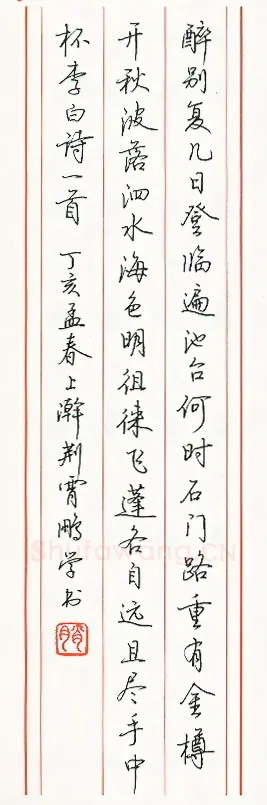 醉别复几日登临遍池台何时石门路重有金樽
开秋波落泗水海色明徂徕飞蓬各自远且尽手中
杯李白诗一首 丁亥孟春上澣荆霄鹏学书
ShufaWang.CN